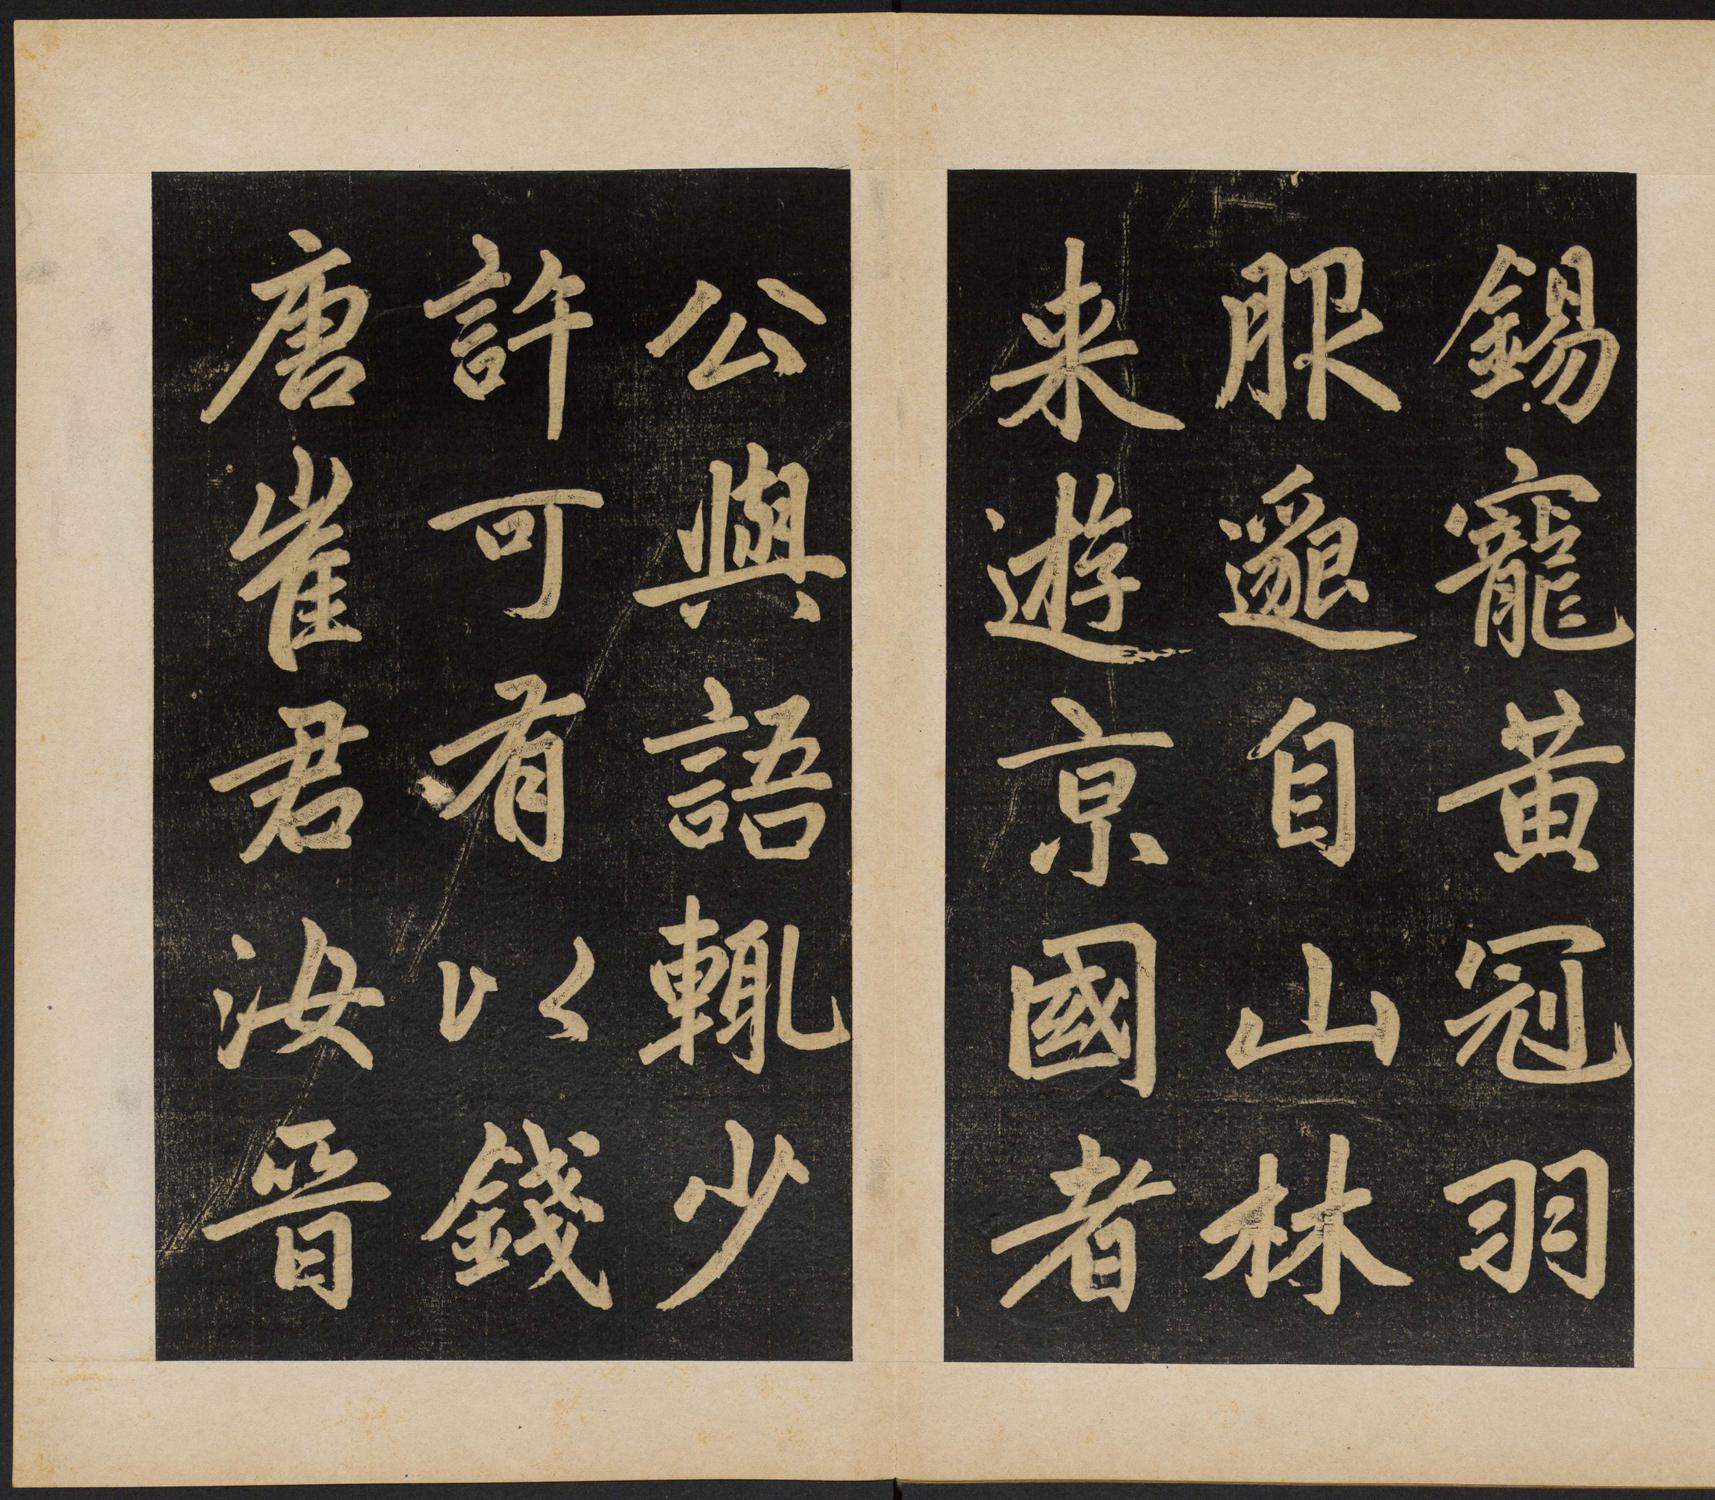 錫寵黃冠羽
服邈自山林
来遊京國者
公與語輒少
許可有以錢
唐崔君汝晉